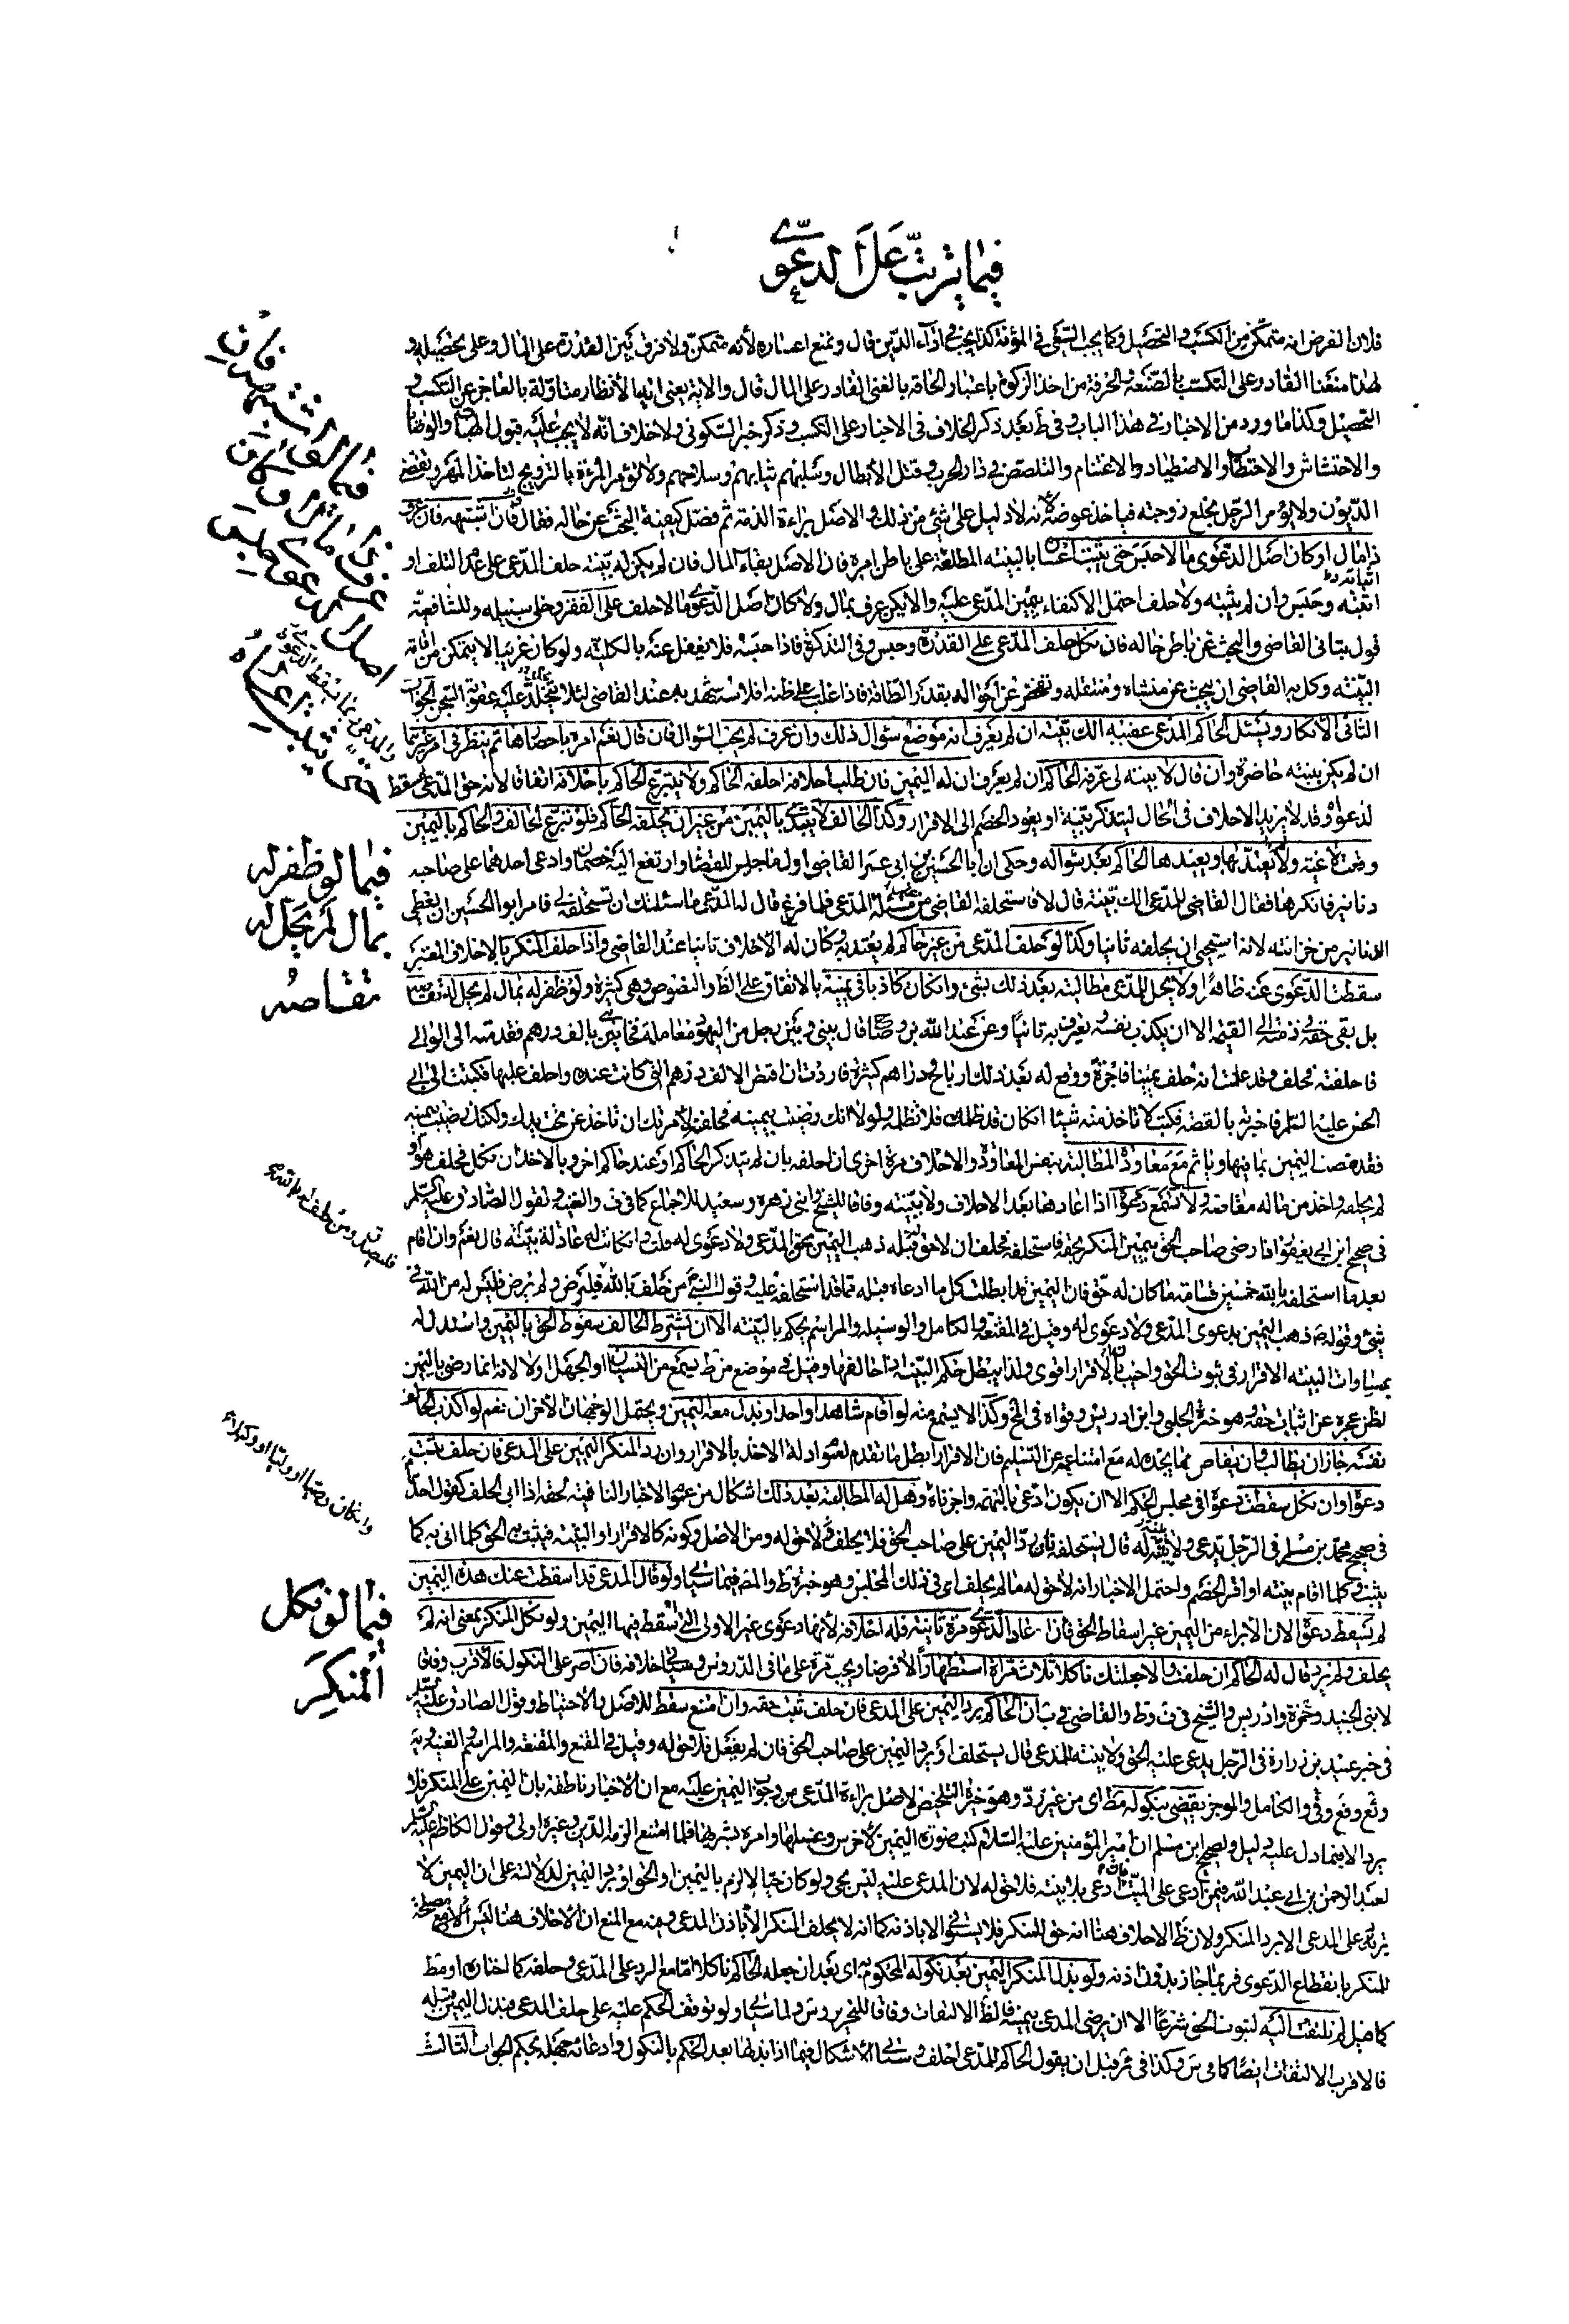 فيما يترتب على الدعوى
فلان الفرض انه متمكن من الكسب والتحصيل وكما يجب السعى فى المؤنة كذا يجب فى اداء الدين قال ونمنع اعساره لأنه متمكن ولا فرق بين القدرة على المال وعلى تحصيله و
لهذا منعنا القادر على التكسب بالصنعة والحرفة من اخذ الزكوة باعتبار الحاقه بالغنى القادر على المال قال والاية يعنى اية الأنظار متاولة بالعاجز عن التكسب و
التحصيل وكذا ما ورد من الاخبار فى هذا الباب وفى ط بعد ذكر الخلاف فى الاجبار على التكسب وذكر خبر السكونى ولا خلاف انه لا يجب عليه قبول الهبات والوصايا
والاحتشاش والاحتطاب والاصطياد والاغتنام والتلصص فى دار الحرب وقتل الأبطال وسلبهم ثيابهم وسلاحهم ولا تؤمر المرءة بالتزويج لتاخذ المهر وتقضى
الديون ولا يؤمر الرجل بخلع زوجته فياخذ عوضه لأنه لا دليل على شئ من ذلك والاصل براءة الذمة ثم فصل كيفية البحث عن حاله فقال فان اشتبه فان عرف
ذا مال او كان اصل الدعوى مالا حبس حتى يثبت اعساره بالبينة المطلعة على باطن امره فان الاصل بقاء المال فان لم يكن له بينة حلف المدعى على عدم التلف او
اثبته وحبس وان لم يثبته ولا حلف احتمل الأكتفاء بيمين المدعى عليه والا يكن عرف بمال ولا كان اصل الدعوى مالا حلف على الفقر وخلى سبيله وللشافعية
قول بتانى القاضى والبحث عن باطن حاله فان نكل حلف المدعى على القدرة وحبس وفى التذكرة فاذا حبسه فلا يغفل عنه بالكلية ولو كان غريبا لا يتمكن من اقامة
البينة وكل به القاضى من يبحث عن منشاه ومنتقله وتفحص عن احواله بقدر الطاقة فاذا غلب على ظنه افلاسه شهد به عند القاضى لئلا يتخلد عليه عقوبة السجن الجواب
الثانى الانكار ويسئل الحاكم المدعى عقيبه الك بينة ان لم يعرف انه موضع سؤال ذلك وان عرف لم يجب السؤال فان قال نعم امره باحضارها ثم ينظر فى امر غريمها
ان لم يكن بينته حاضرة وان قال لا بينة لى عرفه الحاكم ان لم يعرف ان له اليمين فان طلب احلافه احلفه الحاكم ولا يتبرع الحاكم باحلافه اتفاقا لانه حق المدعى مسقط
لدعواه وقد لا يريد الاحلاف فى الحال ليتذكر بينة او يعود الخصم الى الاقرار وكذا الحالف لا يبتدى باليمين من غير ان يحلفه الحاكم فلو تبرع الحالف او الحاكم باليمين
وقعت لاغية ولا يعتد بها ويعيدها الحاكم بعد سؤاله وحكى ان ابا الحسين بن ابى عمر القاضى اول ما جلس للقضاء ارتفع اليه خصمان وادعى احدهما على صاحبه
دنانير فانكرها فقال القاضى للمدعى الك بينة قال لا فاستحلفه القاضى من غير مسئلة المدعى فلما فرغ قال له المدعى ما سئلتك ان تستحلفه لى فامر ابو الحسين ان يعطى
الدنانير من خزانته لانه استحيى ان يحلفه ثانيا وكذا لو حلف المدعى من غير حاكم لم يعتد به وكان له الاحلاف ثانيا عند القاضى واذا حلف المنكر بالاحلاف المعتبر
سقطت الدعوى عنه ظاهرا ولا يحل للمدعى مطالبته بعد ذلك بشئ وان كان كاذبا فى يمينه بالاتفاق على الظ والنصوص وهى كثيرة ولو ظفر له بمال لم يحل له تقاصه
بل بقى حقه فى ذمته الى القيمة الا ان يكذب نفسه ويعترف به ثانيا وعن عبد الله بن وضاح قال بينى وبين رجل من اليهود معاملة فخاننى بالف درهم فقدمته الى الوالى
فاحلفته فحلف وقد علمت انه حلف يمينا فاجرة ووقع له بعد ذلك ارباح ودراهم كثيرة فاردت ان اقتص الالف درهم التى كانت عنده واحلف عليها فكتبت الى ابى
الحسن عليه السلم فاخبرته بالقصة فكتب لا تاخذ منه شيئا ان كان قد ظلمك فلا تظلمه ولولا انك رضيت بيمينه فحلفته لامرتك ان تاخذ من تحت يدك ولكنك رضيت بيمينه
فقد مضت اليمين بما فيها وياثم مع معاودة المطالبة بنفس المعاودة والاحلاف مرة اخرى ان احلفه بان لم يتذكر الحاكم او عند حاكم اخر وبالاخذ ان نكل فحلف هو او
لم يحلفه واخذ من ماله مقاصة ولا تسمع دعواه اذا اعادها بعد الاحلاف ولا بينته وفاقا للشيخ وابنى زهرة وسعيد للاجماع كما فى ف والغنية ولقول الصادق عليه السلم
فى صحيح ابن ابى يعفور اذا رضى صاحب الحق بيمين المنكر لحقه فاستحلفه فحلف ان لا حق له قبله ذهب اليمين بحق المدعى ولا دعوى له قلت وان كانت له عادلة بينة قال نعم وان اقام
بعد ما استحلفه بالله خمسين قسامة ما كان له حق فان اليمين قد ابطلت كل ما ادعاه قبله مما قد استحلفه عليه وقول النبى ص من حلف بالله فليرض ولم يرض فليس له من الله فى
شئ وقوله ع ذهب اليمين بدعوى المدعى ولا دعوى له وقيل فى المقنعة والكامل والوسيلة والمراسم يحكم بالبينة الا ان يشترط الحالف سقوط الحق باليمين واستدل له
بمساوات البينة الاقرار فى ثبوت الحق واجيب بان الاقرار اقوى ولذا يبطل حكم البينة اذا خالفها وقيل فى موضع من ط يسمع مع النسيان او الجهل او لا لانه انما رضى باليمين
لظن عجزه عن اثبات حقه وهو خيرة الحلبى وابن ادريس وقواه فى المخ وكذا لا يسمع منه لو اقام شاهدا واحدا وبذل معه اليمين ويحتمل الوجهان الأخران نعم لو اكذب الحالف
نفسه جاز ان يطالب وان يقاص مما يجده له مع امتناعه عن التسليم فان الاقرار ابطل ما تقدم لعموم ادلة الاخذ بالاقرار وان رد المنكر اليمين على المدعى فان حلف يثبت
دعواه وان نكل سقطت دعواه فى مجلس الحكم الا ان يكون ادعى بالتهمة واجزناه وهل له المطالبة بعد ذلك اشكال من عموم الاخبار النافية لحقه اذا ابى الحلف كقول احدهما
فى صحيح محمد بن مسلم فى الرجل يدعى ولا بينة له قال يستحلفه فان رد اليمين على صاحب الحق فلم يحلف فلا حق له ومن الاصل وكونه كالاقرار او البينة فيثبت به الحق كلما اتى به كما
يثبت كلما اقام بينة او اقر الخصم واحتمل الاخبار انه لا حق له ما لم يحلف اى فى ذلك المجلس وهو خيرة ط والمص فيما سياتى ولو قال المدعى قد اسقطت عنك هذه اليمين
لم تسقط دعواه لان الأبراء من اليمين غير اسقاط الحق فان اعاد الدعوى مرة ثانية فله احلافه لأنها دعوى غير الاولى التى اسقط فيها اليمين ولو نكل المنكر بمعنى انه لم
يحلف ولم يرد قال له الحاكم ان حلفت والا جعلتك ناكلا ثلاث مرات استظهارا لا فرضا ويجب مرة على ما فى الدروس وسياتى خلافه فان اصر على النكول فالأقرب وفاقا
لابنى الجنيد وحمزة وادريس والشيخ فى ف وط والقاضى فى ب ان الحاكم يرد اليمين على المدعى فان حلف ثبت حقه وان امتنع سقط للاصل والاحتياط وقول الصادق عليه السلم
فى خبر عبيد بن زرارة فى الرجل يدعى عليه الحق ولا بينة للمدعى قال يستحلف او يرد اليمين على صاحب الحق فان لم يفعل فلا حق له وقيل فى المقنع والمقنعة والمراسم والغنية و
وفى الكامل والموجز يقضى بنكوله مط اى من غير رد وهو خيرة التلخيص لاصل براءة المدعى من وجوب اليمين عليه مع ان الأخبار ناطقة بان اليمين على المنكر فلا
يرد الا فيما دل عليه دليل ولصحيح ابن مسلم ان امير المؤمنين عليه السلام كتب صورة اليمين لأخرس وغسلها وامره بشربها فلما امتنع الزمه الدين وغيره اولى وقول الكاظم عليه السلم
لعبد الرحمن بن ابى عبد الله فيمن ادعى على الميت وان ادعى بلا بينة فلا حق له لان المدعى عليه ليس بحى ولو كان حيا لالزم باليمين او الحق او يرد اليمين لدلالته على ان اليمين لا
يرد على المدعى الا برد المنكر ولان ظ الاحلاف هنا انه حق للمنكر فلا يستوفى الا باذنه كما انه لا يحلف المنكر الا باذن المدعى وفيه مع المنع ان الاحلاف هنا ليس الا مع مصلحة
للمنكر بانقطاع الدعوى فربما جاز بدون اذنه ولو بذل المنكر اليمين بعد نكوله المحكوم به اى بعد ان جعله الحاكم ناكلا اما مع الرد على المدعى وحلفه كما اختاره او مط
كما قيل لم يلتفت اليه لثبوت الحق شرعا الا ان يرضى المدعى بيمينه فالظ الالتفات وفاقا للتحرير وس ولما سياتى ولو توقف الحكم عليه على حلف المدعى فبذل اليمين قبله
فالاقرب الالتفات ايضا كما فى س وكذا فى ير قبل ان يقول الحاكم للمدعى احلف وسياتى الاشكال فيما اذا بذلها بعد الحكم بالنكول وادعائه جهله بحكم الجواب الثالث
فيما لو ظفر له
بمال لم يحل له
تقاصه
وان كان وصيا او وليا او وكيلا
فيما لو نكل
المنكر